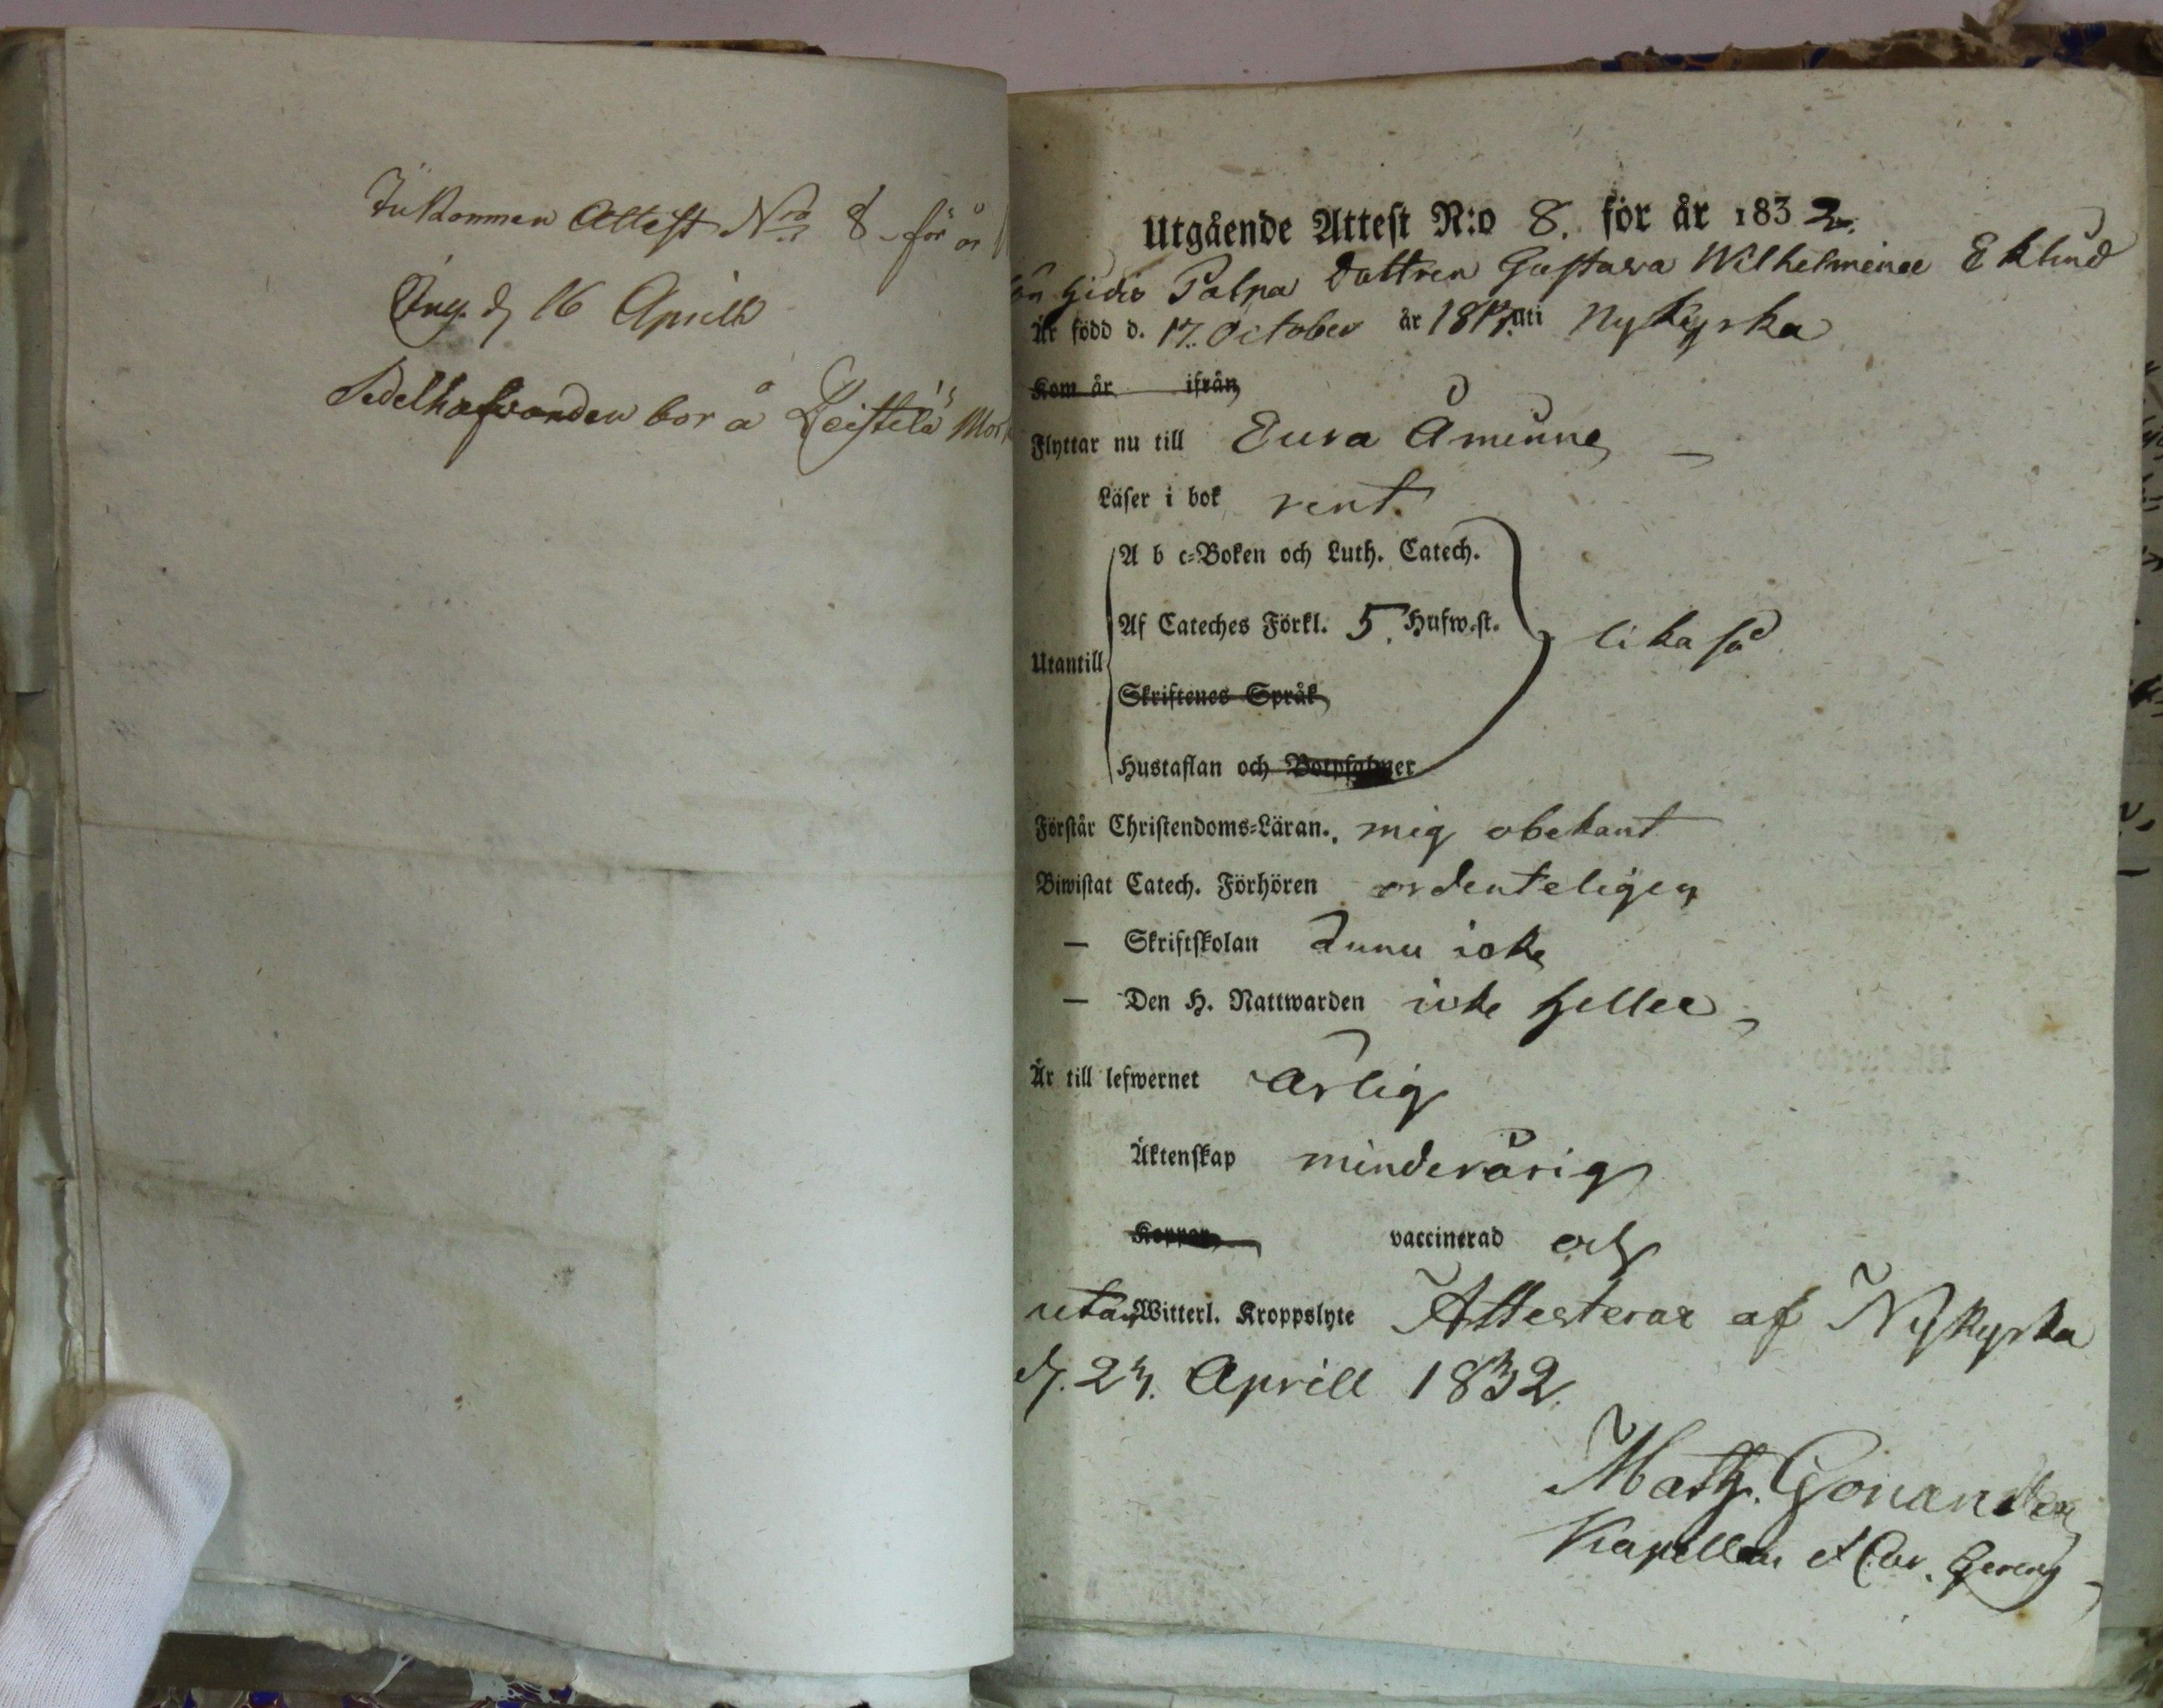 Inkommen Attest N:ro 8. för år
Ing. d. 16 Aprill
Sedelhafvanden bor å Leistilä
Utgående Attest N:o 8. för år 1832.
Palpa dottren Gustava Wilhelmina Eklund
Är född d. 17. October år 1817. uti Nykyrka
Kom år ifrån
Flyttar nu till Eura Åminne
Läser i bok rent.
A b c-Boken och Luth. Catech.
Af Cateches Förkl. 5. Hufw.st. lika så
Utantill
Skriftenes Språk
Hustaflan och Botpsalmer
Förstår Christendoms-Läran. mig obekant
Biwistat Catech. Förhören ordenteligen
— Skriftskolan ännu icke
— Den H. Nattwarden icke heller
Är till lefwernet ärlig
Äktenskap minderårig
Koppor vaccinerad och
utan Witterl. Kroppslyte Attesterar af Nykyrka
d. 23. Aprill 1832.
Math. Gonander
Kapellan